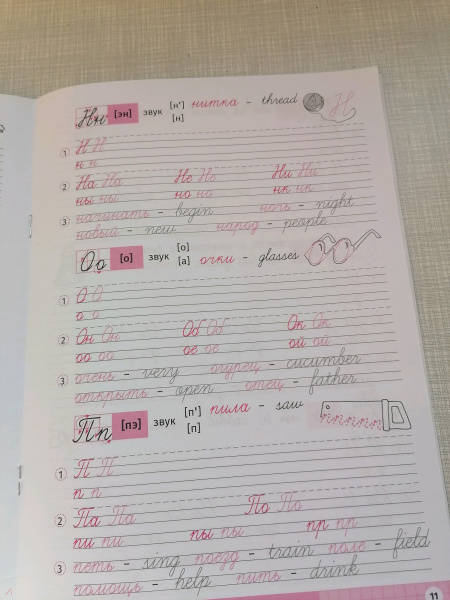 Нн [эн] звук [н'] [н] нитка - thread Н
1 Н Н
н н
2 На На Не Не Ни Ни
ны ны но но нк нк
3 начинать - begin ночь - night
новый - new народ - people
Оо [о] звук [о] [а] очки - glasses
1 О О
о о
2 Он Он Об Об Ок Ок
оо оо ое ое ой ой
3 очень - very огурец - cucumber
открыть - open отец - father
Пп [пэ] звук [п'] [п] пила - saw пппппп
1 П П
п п
2 Па Па По По
пи пи пы пы пр пр
3 петь - sing поезд - train поле - field
помощь - help пить - drink
11